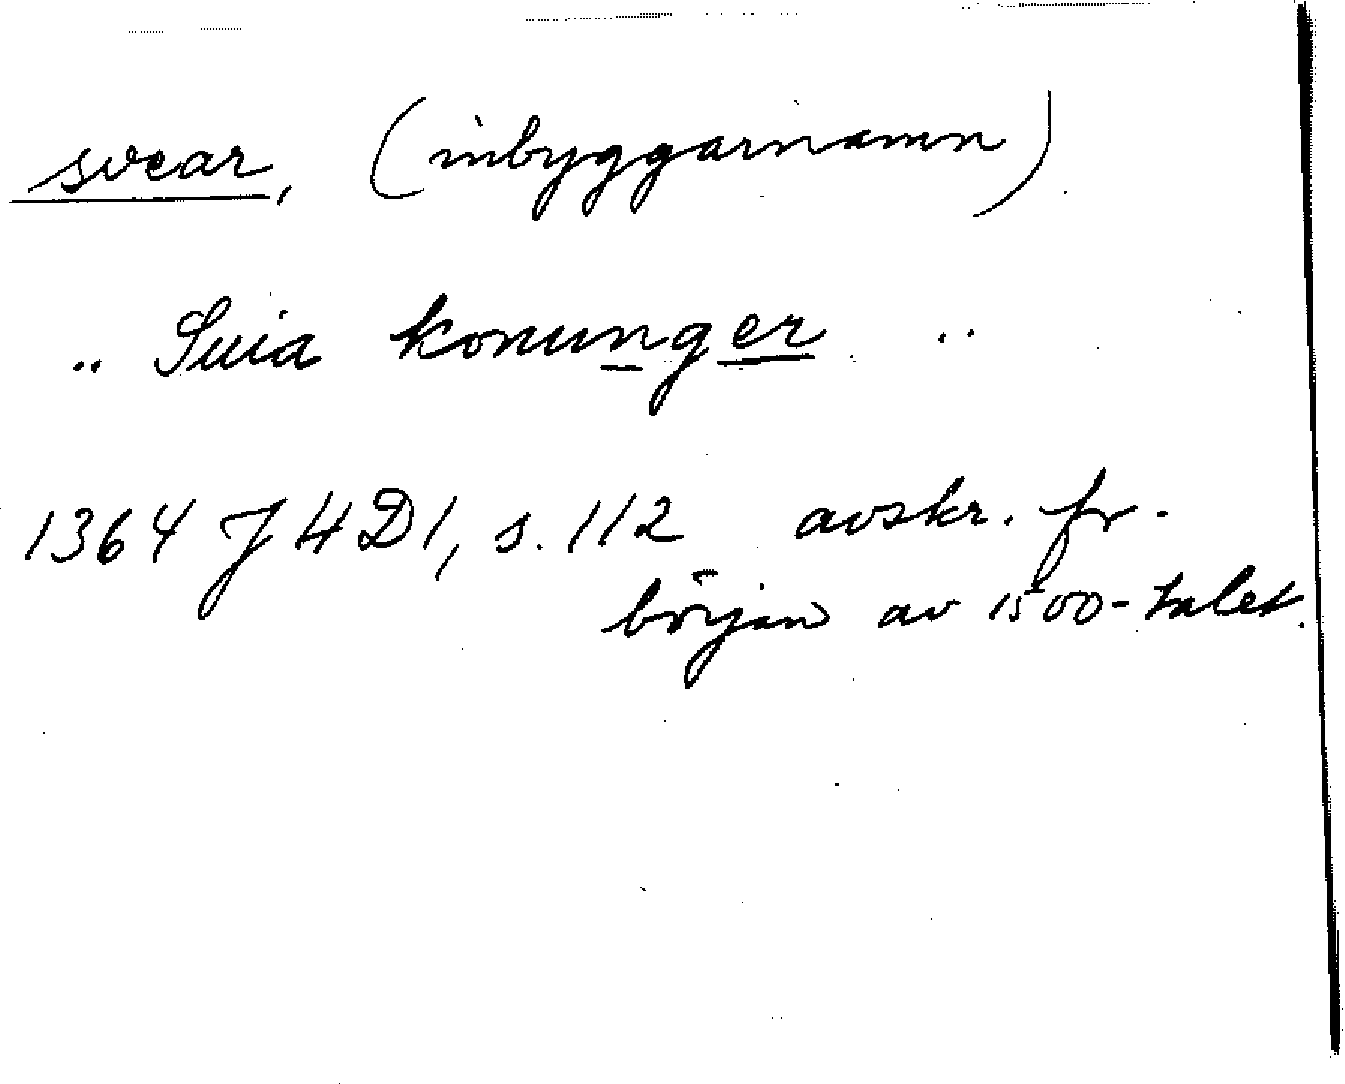 svear, (inbyggarnamn)
.. Suia konunger ..
1364 J 4 D1, s. 112 avskr. fr.
början av 1500-talet.